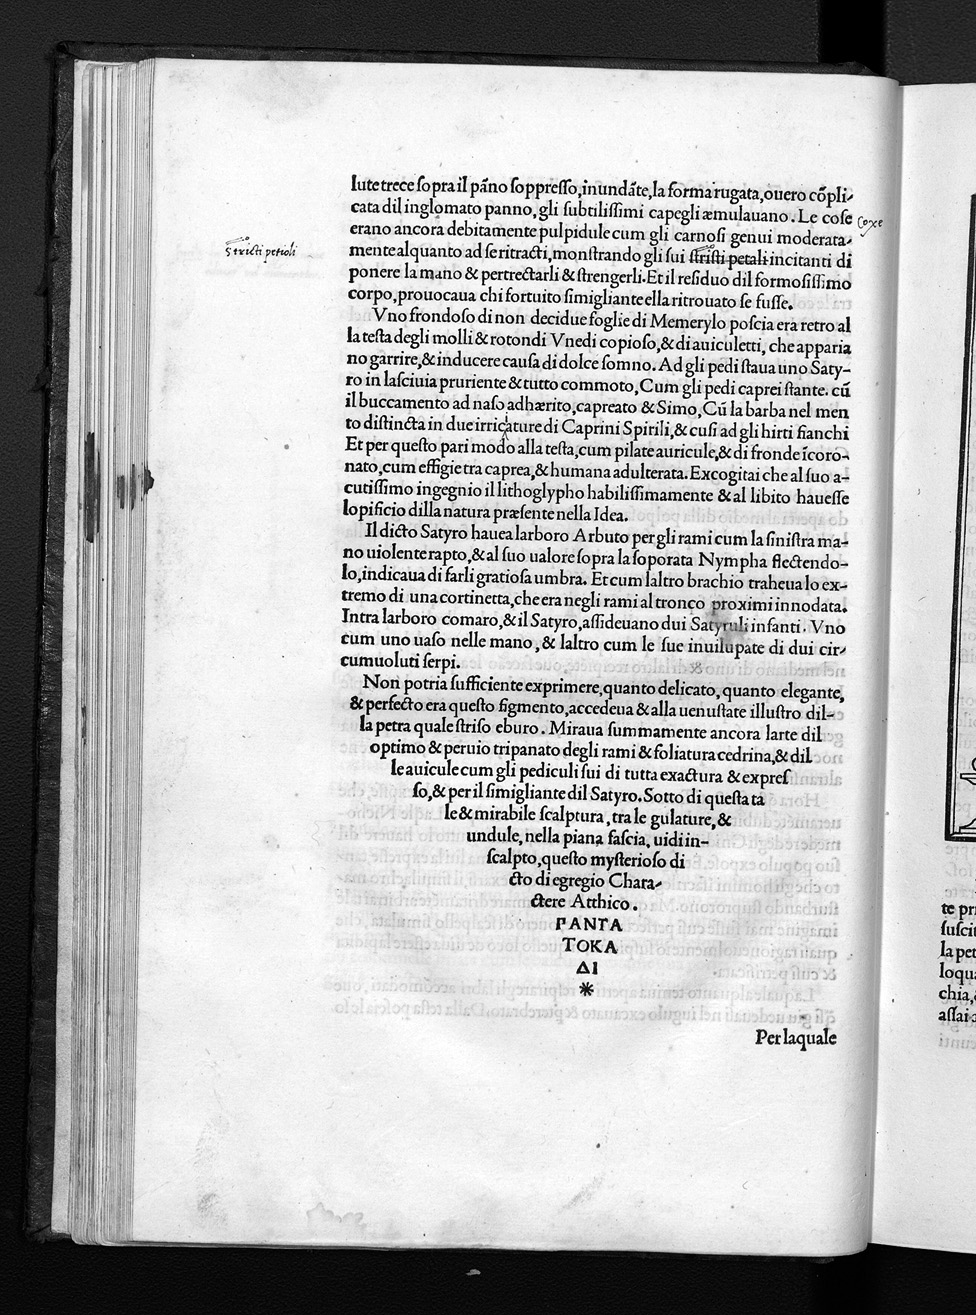 lute trece sopra il pãno soppresso, inundãte, la forma rugata, ouero cõpli-
cata dil inglomato panno, gli subtilissimi capegli æmulauano. Le cose
Coxe
erano ancora debitamente pulpidule cum gli carnosi genui moderata-
mente alquanto ad se ritracti, monstrando gli sui stristi petali incitanti di
stricti petioli
ponere la mano & pertrectarli & strengerli. Et il residuo dil formosissimo
corpo, prouocaua chi fortuito simigliante ella ritrouato se fusse.
Vno frondoso di non decidue foglie di Memerylo poscia era retro al
la testa degli molli & rotondi Vnedi copioso, & di auiculetti, che apparia
no garrire, & inducere causa di dolce somno. Ad gli pedi staua uno Saty-
ro in lasciuia pruriente & tutto commoto, Cum gli pedi caprei stante. cũ
il buccamento ad naso adhærito, capreato & Simo, Cũ la barba nel men
to distincta in due irricature di Caprini Spirili, & cusi ad gli hirti fianchi
Et per questo pari modo alla testa, cum pilate auricule, & di fronde ĩcoro-
nato, cum effigie tra caprea, & humana adulterata. Excogitai che al suo a-
cutissimo ingegnio il lithoglypho habilissimamente & al libito hauesse
lopificio dilla natura præsente nella Idea.
Il dicto Satyro hauea larboro Arbuto per gli rami cum la sinistra ma-
no uiolente rapto, & al suo ualore sopra la soporata Nympha flectendo-
lo, indicaua di farli gratiosa umbra. Et cum laltro brachio traheua lo ex-
tremo di una cortinetta, che era negli rami al tronco proximi innodata.
Intra larboro comaro, & il Satyro, assideuano dui Satyruli infanti. Vno
cum uno uaso nelle mano, & laltro cum le sue inuilupate di dui cir-
cumuoluti serpi.
Non potria sufficiente exprimere, quanto delicato, quanto elegante,
& perfecto era questo figmento, accedeua & alla uenustate illustro dil-
la petra quale striso eburo. Miraua summamente ancora larte dil
optimo & peruio tripanato degli rami & foliatura cedrina, & dil
le auicule cum gli pediculi sui di tutta exactura & expres
so, & per il simigliante dil Satyro. Sotto di questa ta
le & mirabile scalptura, tra le gulature, &
undule, nella piana fascia, uidi in-
scalpto, questo mysterioso di
cto di egregio Chara-
ctere Atthico.
ΓΑΝΓΑ
ΤΟΚΑ
ΔΙ
*
Per laquale
te pri
suscit
la pet
loqua
chia,
assai